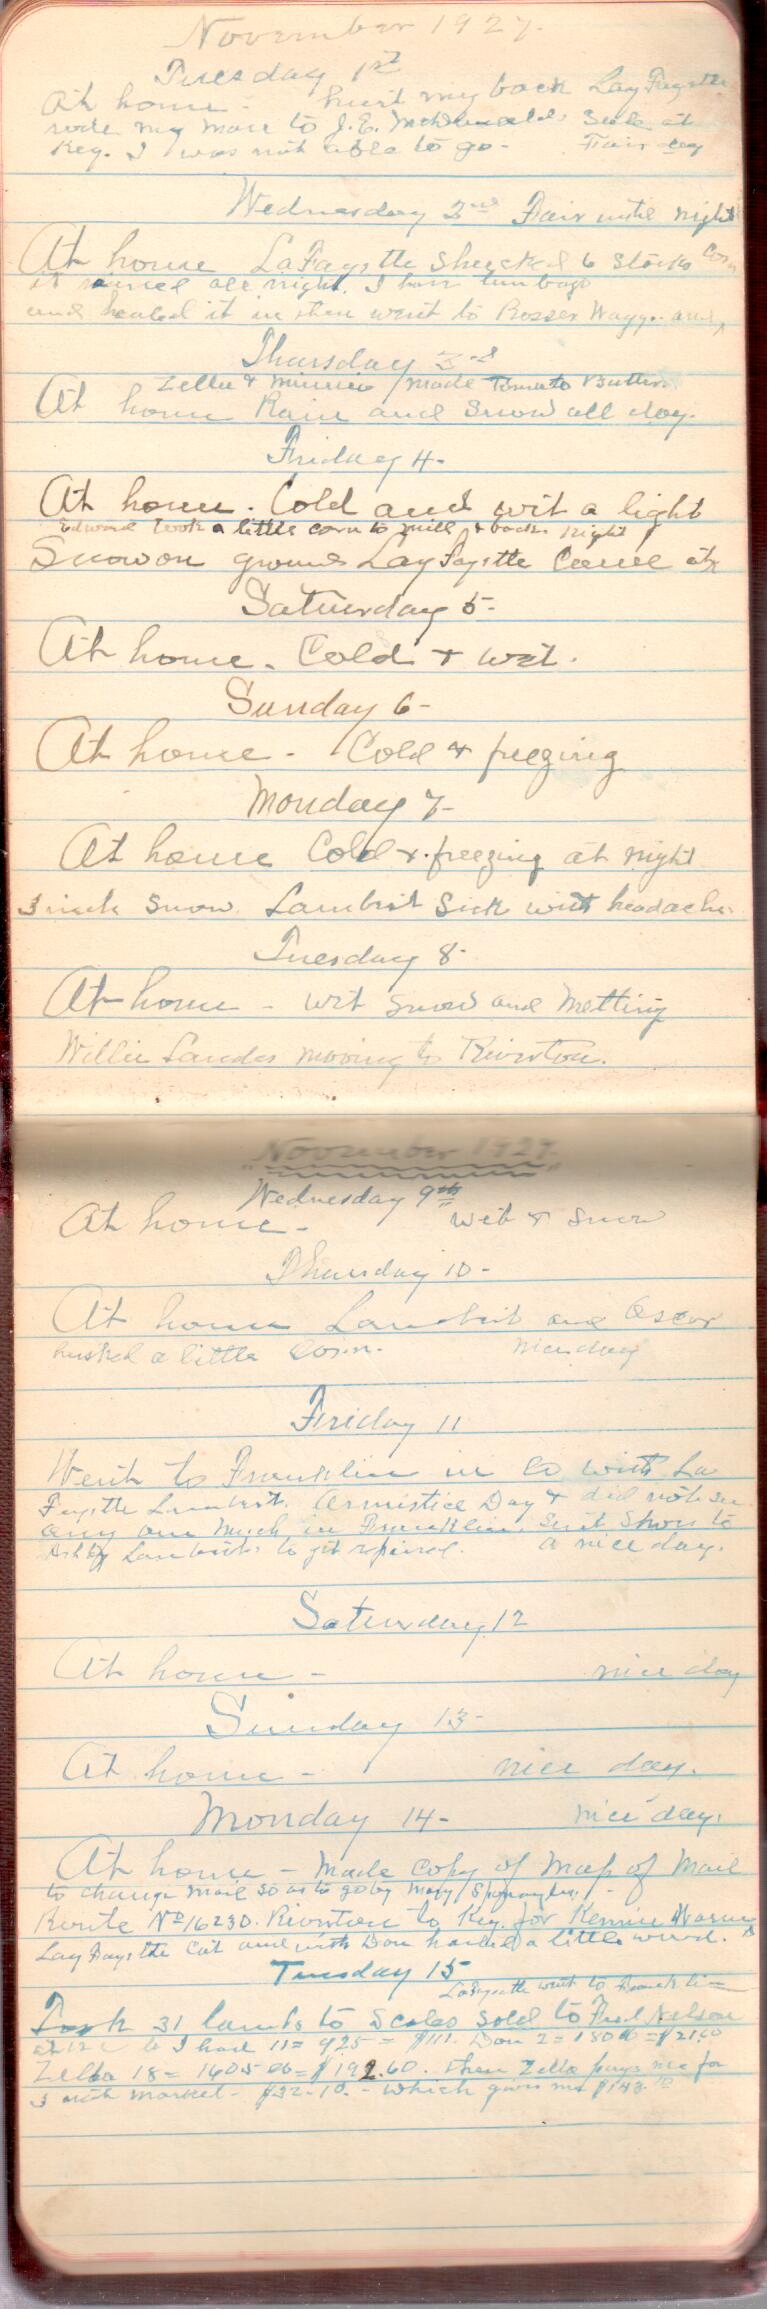 November 1927.
Tuesday 1st
At home - hurt my back LayFaystte
rode my mare to J.E. McDonalds Sale at
Key. I was not able to go - Fair day
Wednesday 2nd Fair until night
At home LaFaystte shucked 6 stocks corn
it rained all night. I have lumbago
and hauled it in then went to Rosser Waggoners,
Thursday 3rd
Zella & Minnie made Tomato Butter
At home Rain and Snow all day.
Friday 4-
At home. Cold and wit a light
Edward took a little corn to mill & back night
Snow on ground LayFaystte Came
Saturday 5-
At home. Cold & wet.
Sunday 6-
At home - Cold & freezing
Monday 7-
At home Cold & freezing at night
3 inch Snow. Lambert Sick with headache
Tuesday 8-
At home - wit snow and Melting
Willie Landes moving to Riverton.
November 1927.
Wednesday 9th
At home - wet & snow
Thursday 10-
At home Lambert and Oscar
husked a little corn. nice day
Friday 11
Went to Franklin in Co with La
Faystte Lambert. Armistice Day & did not see
any one much in Franklin. Sent Shoes to
Ashby Lamberts to get repaired. a nice day.
Saturday 12
At home - nice day
Sunday 13-
At home - nice day.
Monday 14- nice day.
At home - Made Copy of Map of Mail
to change mail so as to go by Mary
Route No 16230. Riverton to Key. for Kennie Warner
LayFaystte Cut and with Don hauled a little wood.
Tuesday 15-
LaFaystte went to Franklin
Took 31 lambs to Scales sold to Fred Nelson
at 12 c lb I had 11 = 925 = $111. Don 2 = 180 lb = $21.60
Zella 18 = 1605 lb = $192.60. then Zella pays me for
3 market - $32.10. - which gives me $143.10